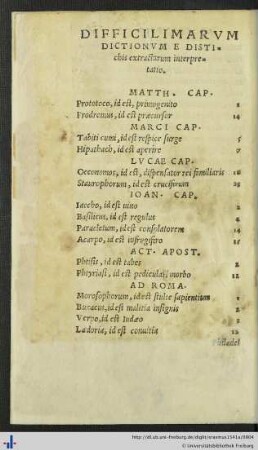 DIFFICILIMARVM
DICTIONVM E DISTI-
chis extractarum interpre-
tatio.
MATTH. CAP.
Prototoco, id est, primogenito 1
Prodromus, id est præcursor 14
MARCI CAP.
Tabiti cumi, id est respice surge 5
Hiphathach, id est aperire 7
LVCAE CAP.
Oeconomos, id est, dispensator rei familiaris 16
Staurophorum, id est crucifixum 23
IOAN. CAP.
Iaccho, id est uino 2
Basilicus, id est regulus 4
Paracletum, id est consolatorem 14
Acarpo, id est infrugifero 15
ACT. APOST.
Phthisis, id est tabes 2
Phtyriasi, id est pediculari morbo 12
AD ROMA.
Morosophorum, id est stulte sapientium 1
Bunacus, id est malitia insignis 2
Verpo, id est Iudæo 2
Lædoria, id est conuitia 12
Philadel
http://dl.ub.uni-freiburg.de/diglit/erasmus1541a/0804
© Universitätsbibliothek Freiburg